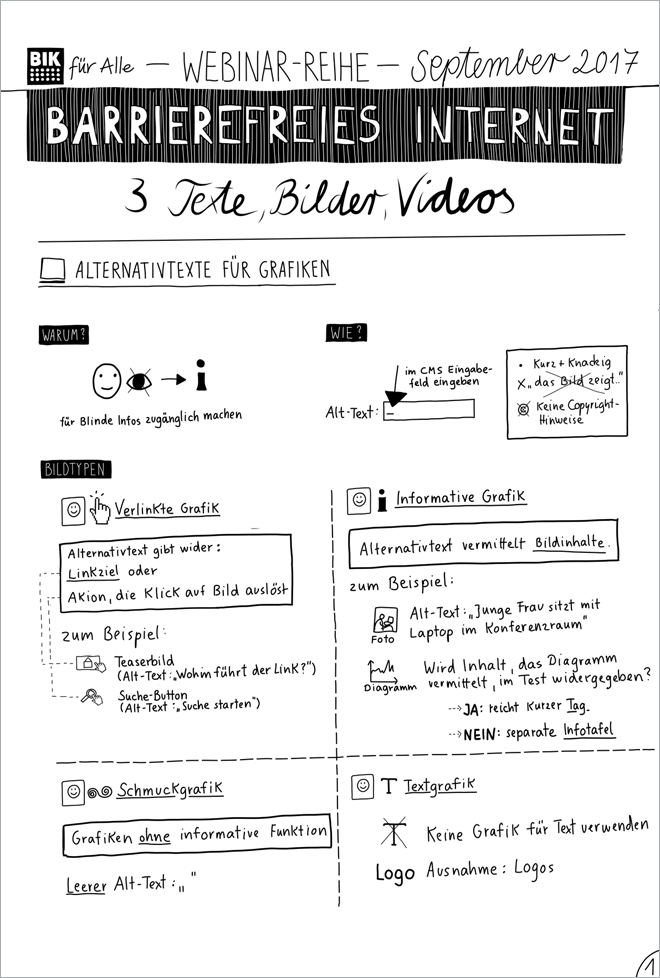 BIK für Alle — WEBINAR-REIHE — September 2017
BARRIEREFREIES INTERNET
3 Texte, Bilder, Videos
ALTERNATIVTEXTE FÜR GRAFIKEN
WARUM?
i
für Blinde Infos zugänglich machen
WIE?
im CMS Eingabe-
feld eingeben
Alt-Text: _
• Kurz + Knackig
x „das Bild zeigt.."
© Keine Copyright-
Hinweise
BILDTYPEN
Verlinkte Grafik
Alternativtext gibt wider:
Linkziel oder
Akion, die Klick auf Bild auslöst
zum Beispiel:
Teaserbild
(Alt-Text: „Wohin führt der Link?")
Suche-Button
(Alt-Text: „Suche starten")
i Informative Grafik
Alternativtext vermittelt Bildinhalte.
zum Beispiel:
Foto
Alt-Text: „Junge Frau sitzt mit
Laptop im Konferenzraum"
Diagramm
Wird Inhalt, das Diagramm
vermittelt, im Test widergegeben?
--> JA: reicht kurzer Tag.
--> NEIN: separate Infotafel
Schmuckgrafik
Grafiken ohne informative Funktion
Leerer Alt-Text: „ "
T Textgrafik
T Keine Grafik für Text verwenden
Logo Ausnahme: Logos
1